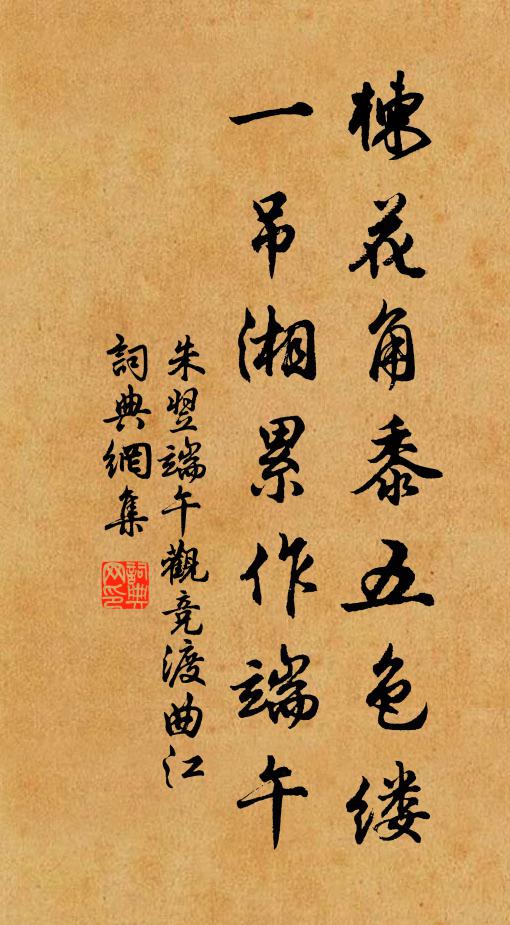 楝花角黍五色缕
一吊湘累作端午
朱翌端午觀竞渡曲江
詞典網集
詞典
网印